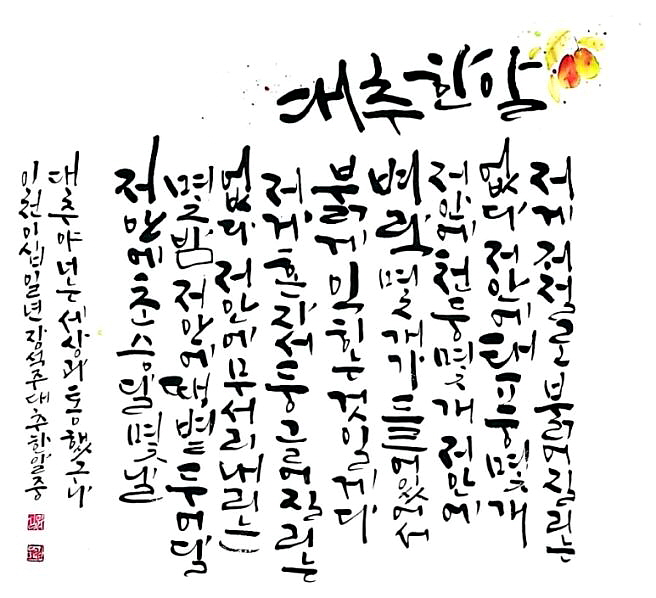 대추 한 알
저게 저절로 붉어질 리는
없다 저 안에 태풍 몇 개
저 안에 천둥 몇 개 저 안에
벼락 몇 개가 들어 있어서
붉게 익히는 것일 게다
저게 혼자서 둥글어질 리는
없다 저 안에 무서리 내리는
몇 밤 저 안에 땡볕 두어 달
저 안에 초승달 몇 날
대추야 너는 세상과 통했구나
이천이십일년 장석주 대추한알 중